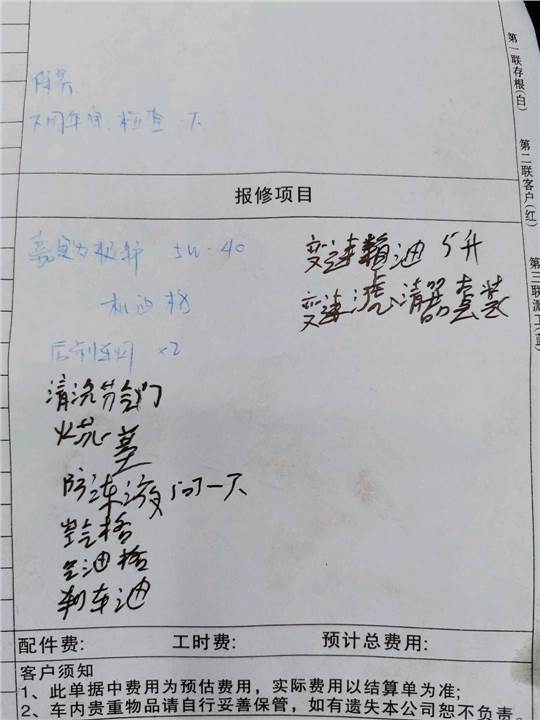 检查一下
报修项目
嘉实多极护 5W-40
机油格
后刹车灯 x2
清洗节气门
火花塞
防冻液 问一下
空气格
空油格
刹车油
变速箱油 5升
变速 清 套装
配件费: 工时费: 预计总费用:
客户须知
1、此单据中费用为预估费用，实际费用以结算单为准;
2、车内贵重物品请自行妥善保管，如有遗失本公司恕不负责。
第一联存根(白)
第二联客户(红)
第三联派工(蓝)